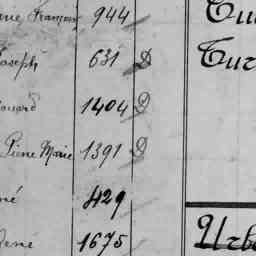 François 944
Joseph 631 D
1404 D
Pierre Marie 1391 D
né 429
René 1675
Tur
Urb